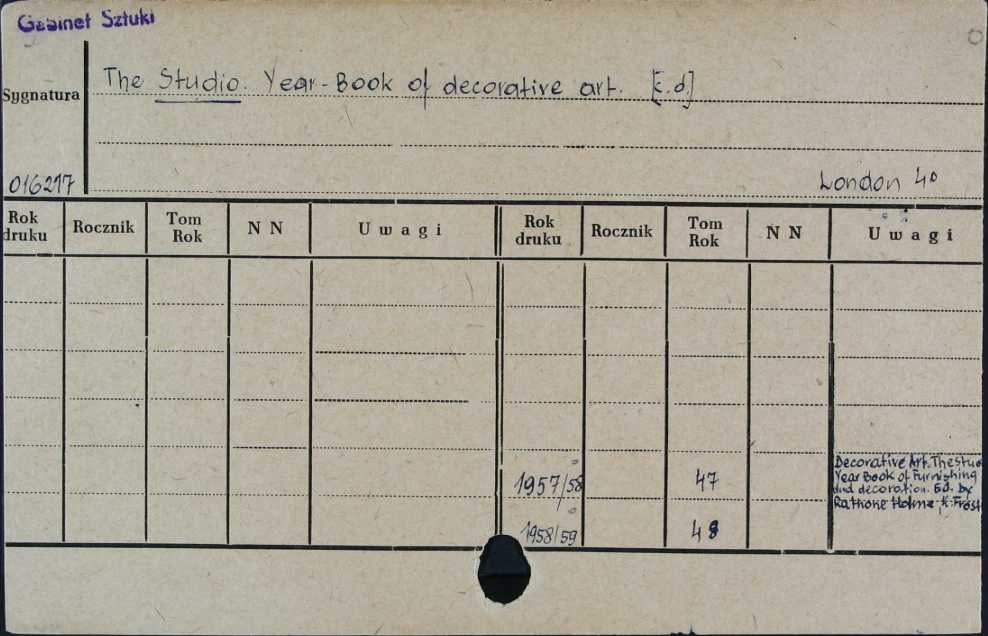 Gabinet Sztuki
The Studio. Year-Book of decorative art. [c.d.]
Sygnatura
016217
London 4°
Rok druku Rocznik Tom Rok N N Uwagi Rok druku Rocznik Tom Rok N N Uwagi
Decorative Art. The Stud
Year Book of Furnishing
and decoration. Ed. by
Rathbone Holme, K. Frost
1957/58 47
1958/59 48